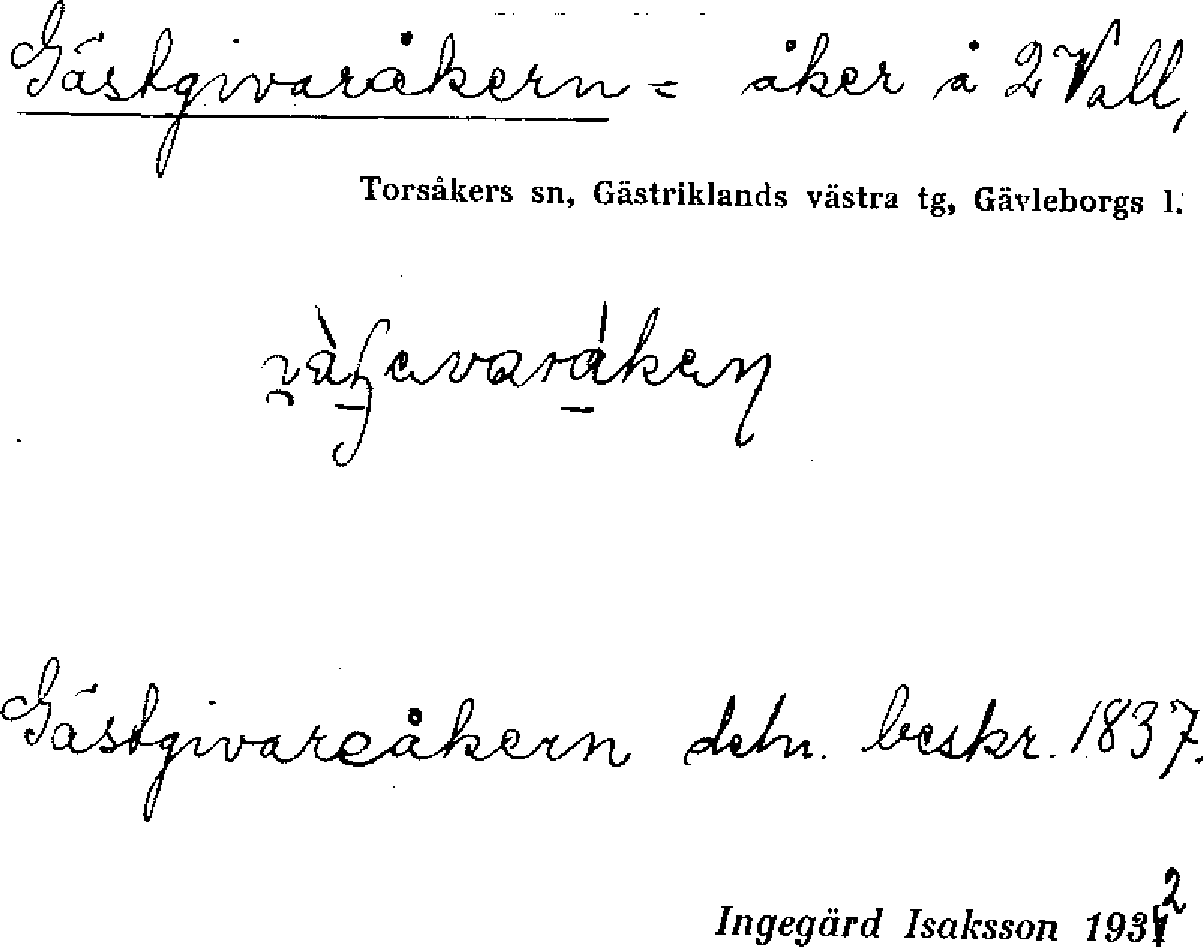 Gästgivaråkern = åker å 2 Vall,
Torsåkers sn, Gästriklands västra tg, Gävleborgs l.
Gästgivareåkern detn. beskr. 1837.
Ingegärd Isaksson 1932